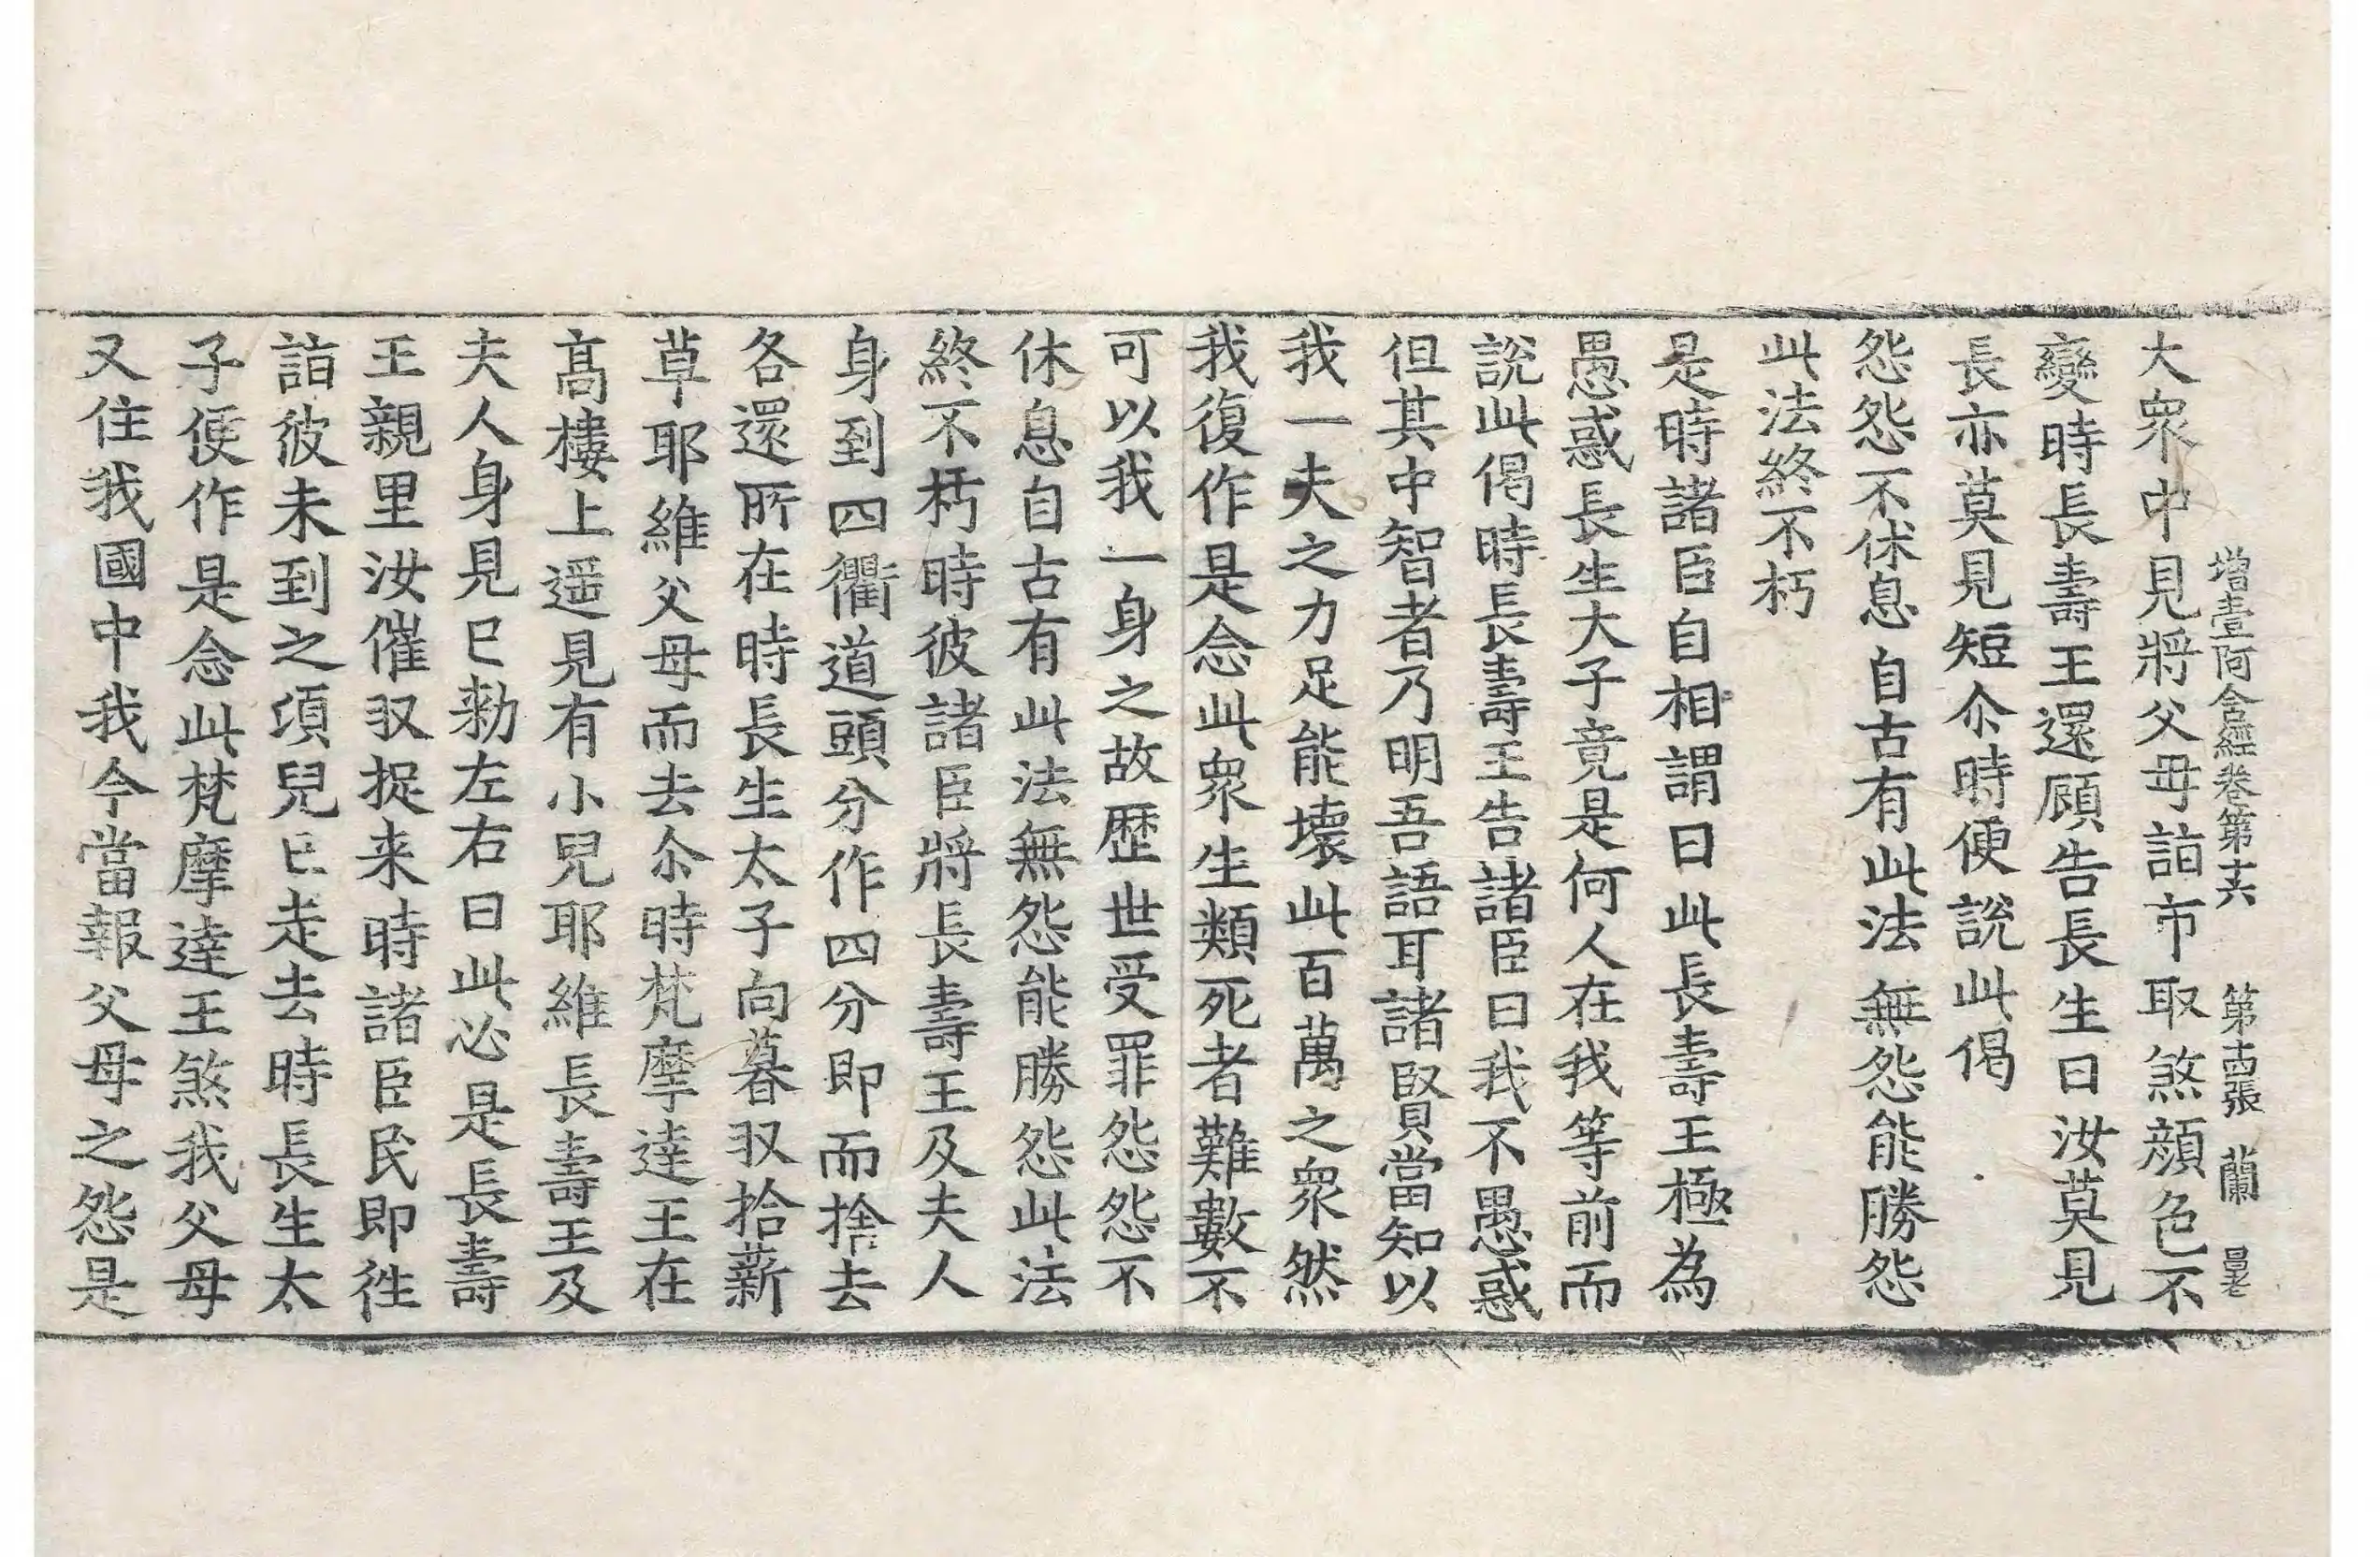 增壹阿含經卷第十六　第十四張　蘭
大衆中見將父母詣市取煞顔色不
變時長壽王還顧告長生曰汝莫見
長亦莫見短尒時便說此偈
怨怨不休息　自古有此法　無怨能勝怨
此法終不朽
是時諸臣自相謂曰此長壽王極為
愚惑長生大子竟是何人在我等前而
說此偈時長壽王告諸臣曰我不愚惑
但其中智者乃明吾語耳諸賢當知以
我一夫之力足能壞此百萬之衆然
我復作是念此衆生類死者難數不
可以我一身之故歷世受罪怨怨不
休息自古有此法無怨能勝怨此法
終不朽時彼諸臣將長壽王及夫人
身到四衢道頭分作四分即而捨去
各還所在時長生太子向暮収拾薪
草耶維父母而去尒時梵摩達王在
髙樓上遥見有小兒耶維長壽王及
夫人身見已勑左右曰此必是長壽
王親里汝催収捉来時諸臣民即徃
詣彼未到之項兒已走去時長生太
子便作是念此梵摩達王煞我父母
又住我國中我今當報父母之怨是